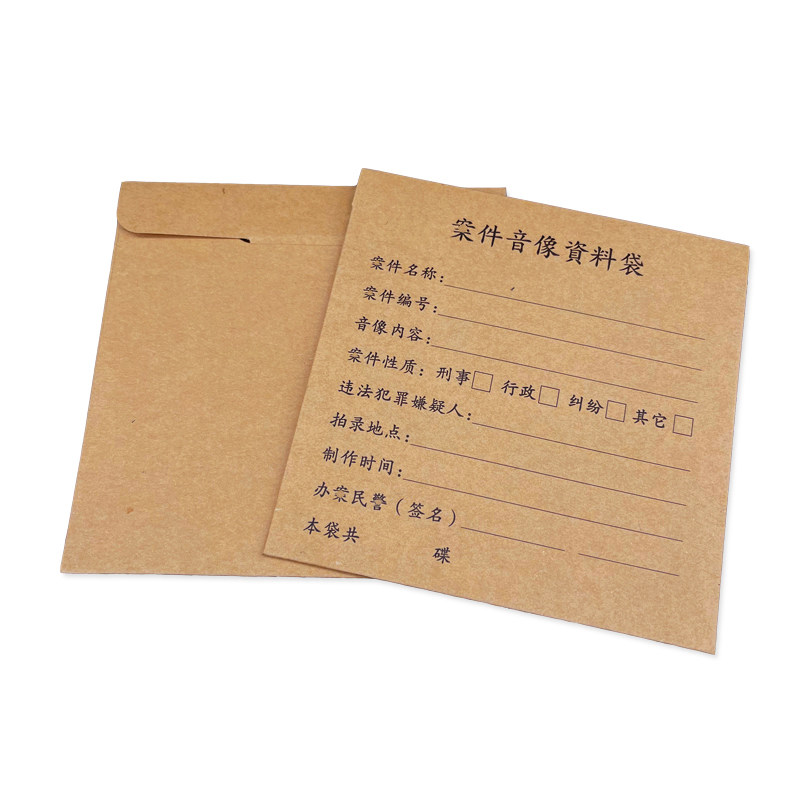 案件音像資料袋
案件名称:
案件编号:
音像内容:
案件性质: 刑事□ 行政□ 纠纷□ 其它□
违法犯罪嫌疑人:
拍录地点:
制作时间:
办案民警（签名）
本袋共 碟